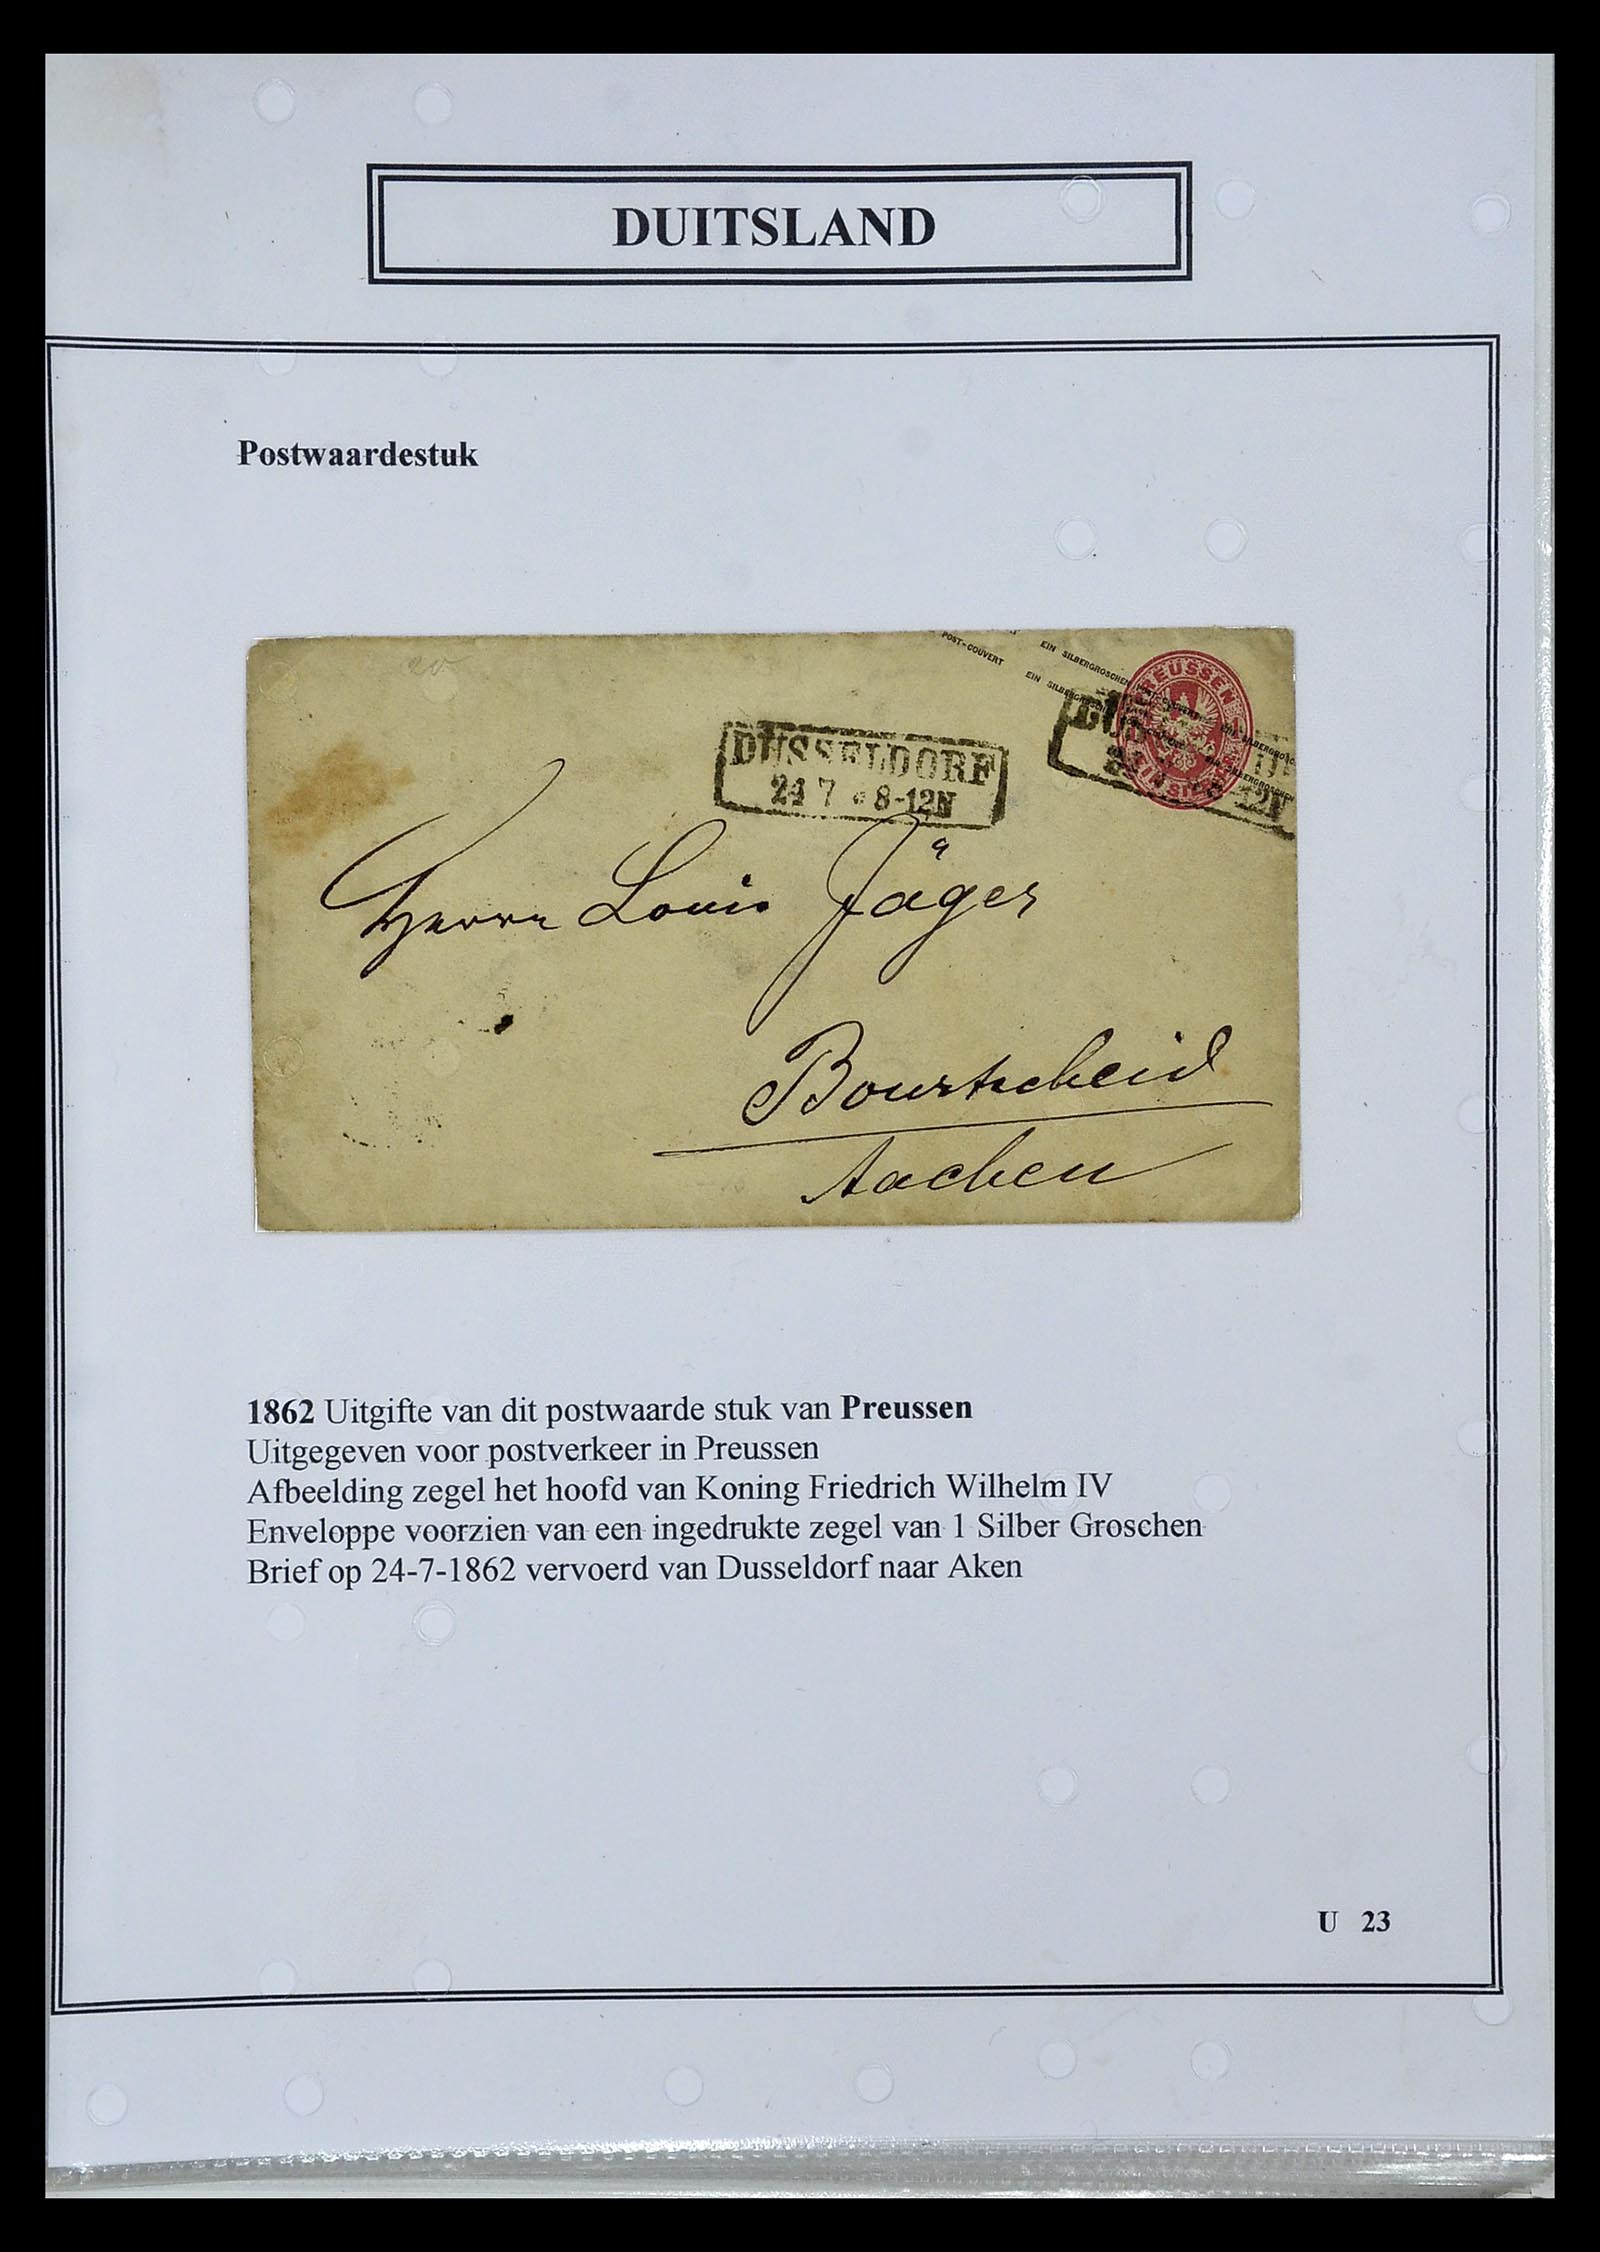 DUITSLAND
Postwaardestuk
20
POST-COUVERT
EIN SILBERGROSCHEN POST-COUVERT EIN SILBERGROSC
EIN SILBERGROSCHEN POST-COUVERT EIN SILBERGROSCHEN
PREUSSEN
EIN SILB
DUSSELDORF
24 7 * 8-12N
Herrn Louis Jäger
Bourtscheid
Aachen
1862 Uitgifte van dit postwaarde stuk van Preussen
Uitgegeven voor postverkeer in Preussen
Afbeelding zegel het hoofd van Koning Friedrich Wilhelm IV
Enveloppe voorzien van een ingedrukte zegel van 1 Silber Groschen
Brief op 24-7-1862 vervoerd van Dusseldorf naar Aken
U 23